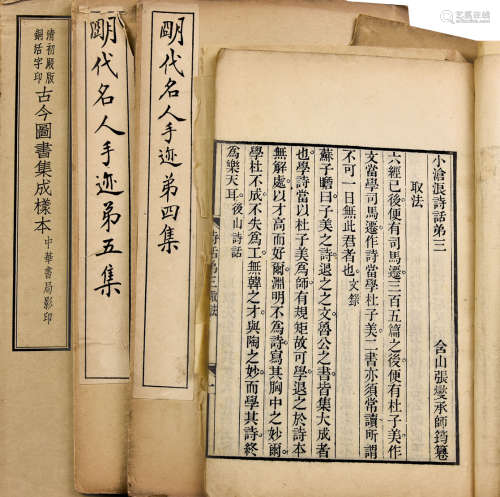 小滄浪詩話第三
含山張燮承師筠纂
取法
六經已後便有司馬遷。三百五篇之後便有杜子美。作
文當學司馬遷。作詩當學杜子美。二書亦須常讀。所謂
不可一日無此君者也。文錄
蘇子瞻曰。子美之詩。退之之文。魯公之書。皆集大成者
也。學詩當以杜子美爲師。有規矩。故可學。退之於詩。本
無解處。以才高而好爾。淵明不爲詩。寫其胸中之妙爾。
學杜不成。不失爲工。無韓之才。與陶之妙。而學其詩。終
爲樂天耳。後山詩話
詩話第三 取法
一
明代名人手迹第四集
明代名人手迹第五集
清初殿版
銅活字印
古今圖書集成樣本
中華書局影印